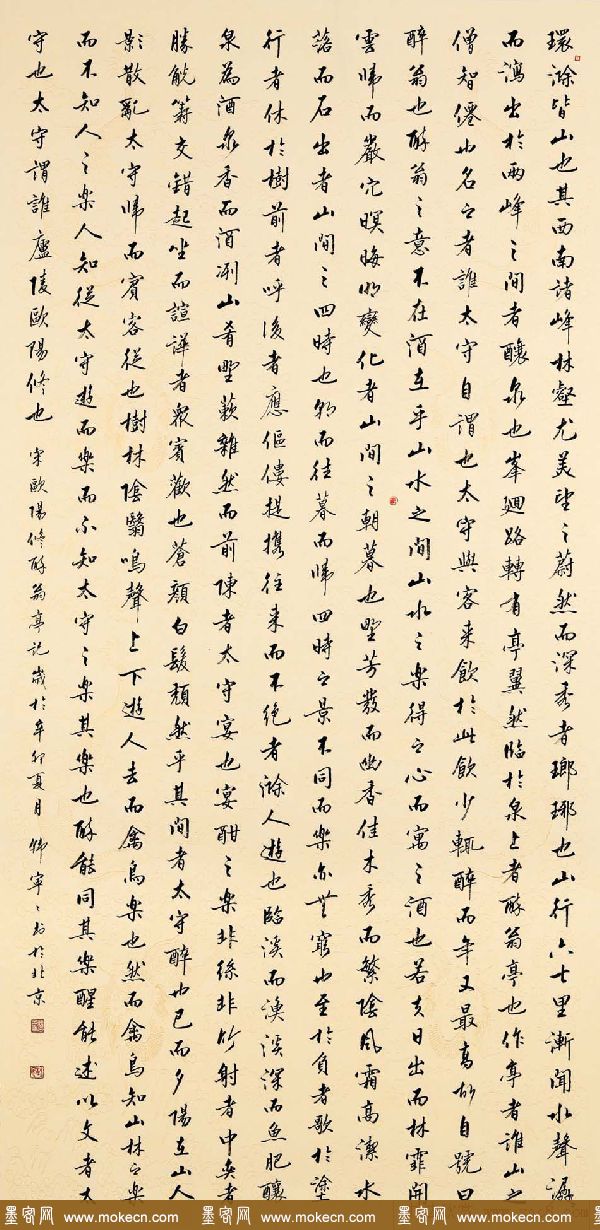 環滁皆山也其西南諸峰林壑尤美望之蔚然而深秀者瑯琊也山行六七里漸聞水聲潺
而瀉出於兩峰之間者釀泉也峯廻路轉有亭翼然臨於泉上者醉翁亭也作亭者誰山之
僧智僊也名之者誰太守自謂也太守與客来飲於此飲少輒醉而年又最高故自號曰
醉翁也醉翁之意不在酒在乎山水之間山水之樂得之心而寓之酒也若夫日出而林霏開
雲歸而巖穴暝晦明變化者山間之朝暮也野芳發而幽香佳木秀而繁陰風霜高潔水
落而石出者山間之四時也朝而往暮而歸四時之景不同而樂亦無窮也至於負者歌於塗
行者休於樹前者呼後者應傴僂提携往来而不絶者滁人遊也臨溪而漁溪深而魚肥釀
泉為酒泉香而酒洌山肴野蔌雜然而前陳者太守宴也宴酣之樂非絲非竹射者中奕者
勝觥籌交錯起坐而諠譁者衆賓歡也蒼顔白髮頹然乎其間者太守醉也已而夕陽在山人
影散亂太守歸而賓客從也樹林陰翳鳴聲上下遊人去而禽鳥樂也然而禽鳥知山林之樂
而不知人之樂人知從太守遊而樂而不知太守之樂其樂也醉能同其樂醒能述以文者太
守也太守謂誰廬陵歐陽修也
宋歐陽修醉翁亭記歲於辛卯夏月韓寧寧書於北京
墨客网 www.mokecn.com 墨客网 www.mokecn.com 墨客网 www.mokecn.com